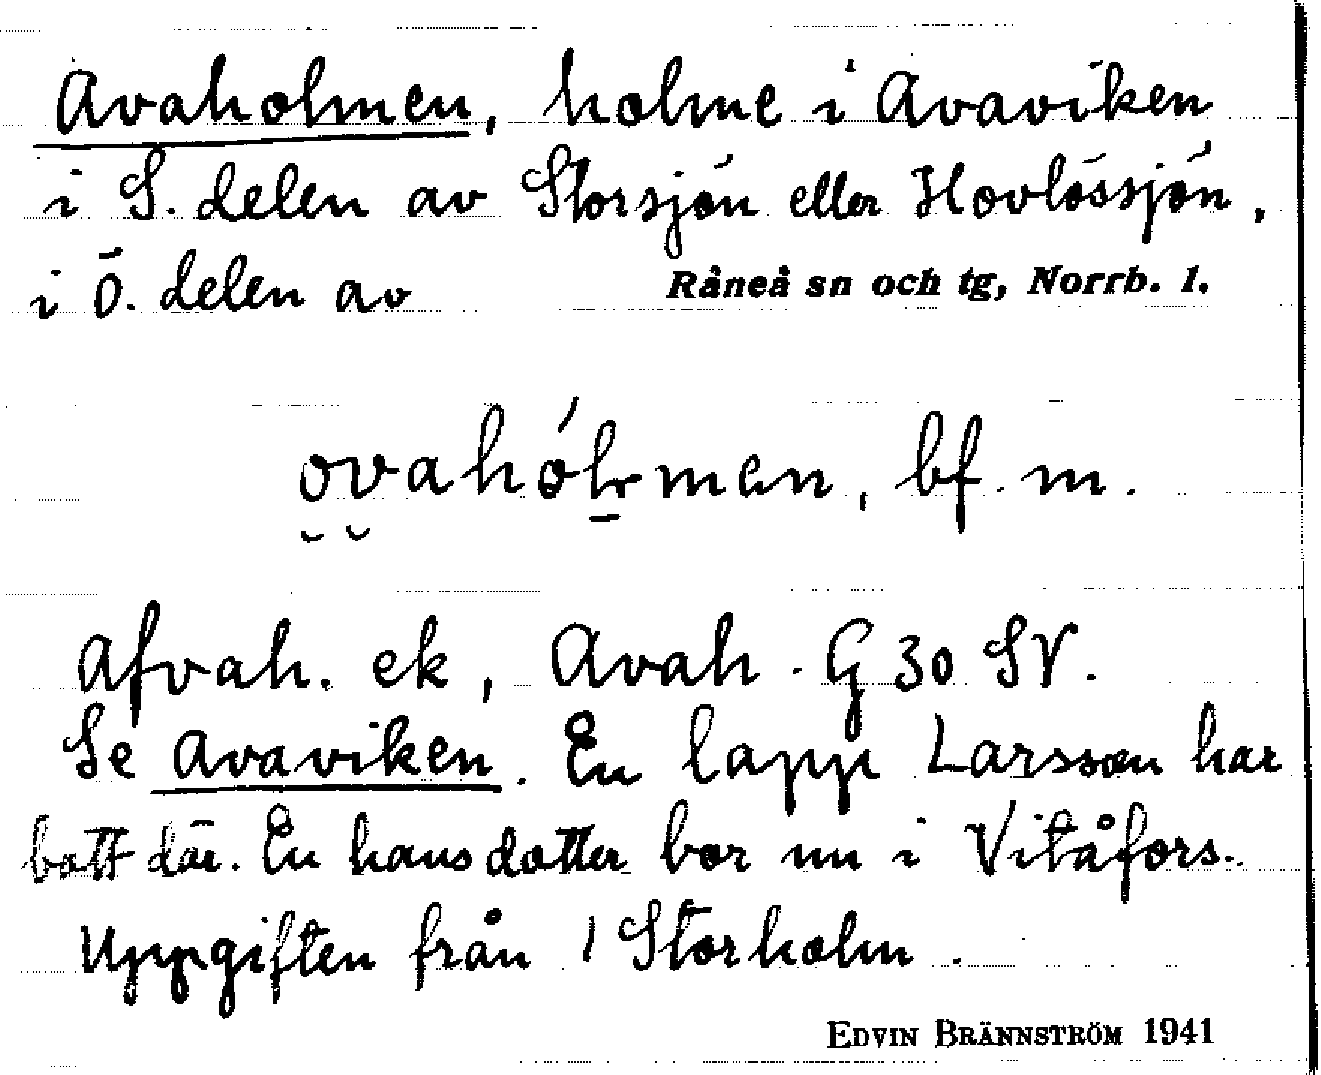 Avaholmen, holme i Avaviken
i S. delen av Storsjön eller Hovlössjön,
i Ö. delen av Råneå sn och tg, Norrb. l.
ovahólmen, bf. m.
Afvah. ek, Avah. G 30 SV.
Se Avaviken. En lapp Larsson har
bott där. En hans dotter bor nu i Vitåfors.
Uppgiften från 1 Storholm.
EDVIN BRÄNNSTRÖM 1941